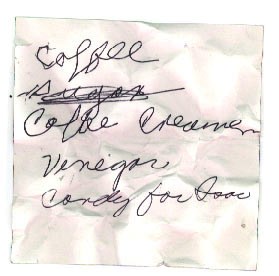 Coffee
Sugar
Coffee Creamer
Venegar
Candy for Isac